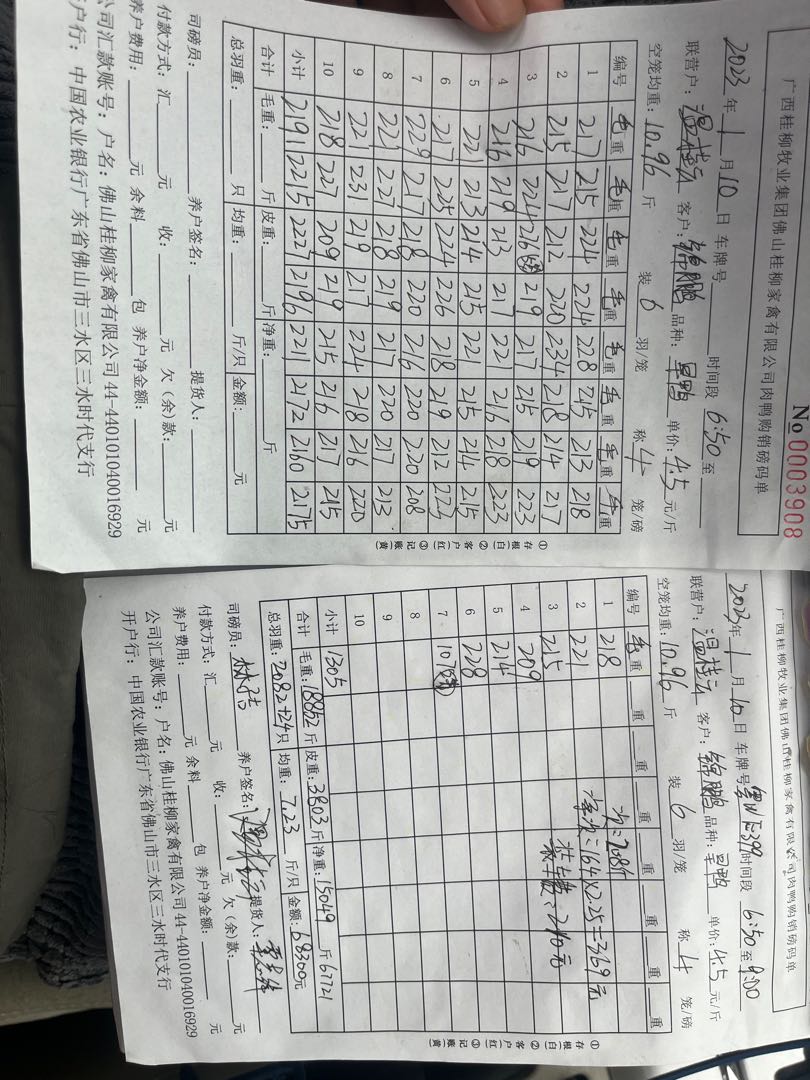 广西桂柳牧业集团佛山桂柳家禽有限公司肉鸭购销磅码单
No 00003908
2023年1月10日 车牌号 时间段 6:50至
联营户:温桂云 客户:锦鹏 品种:旱鸭 单价:4.5元/斤
空笼均重:10.96斤 装6羽/笼 称4笼/磅
编号 毛重 毛重 毛重 毛重 毛重 毛重 毛重 毛重
1 217 215 224 224 228 215 213 218
2 215 217 212 220 234 218 214 217
3 216 224 219 217 215 219 223
4 216 219 213 217 22 216 218 223
5 221 213 214 215 221 215 214 215
6 217 225 224 226 218 219 212 225
7 229 217 218 220 216 220 220 208
8 221 221 218 219 217 220 217 213
9 22 231 219 217 224 218 216 220
10 218 227 209 219 215 216 217 215
小计 2191 2215 2227 2196 221 2172 2160 2175
合计 毛重: 斤 皮重: 斤 净重: 斤
总羽重: 只 均重: 斤/只 金额: 元
司磅员: 养户签名: 提货人:
付款方式:汇 元 收: 元 欠(余)款: 元
养户费用: 元 余料 包 养户净金额: 元
公司汇款账号:户名:佛山桂柳家禽有限公司44-440101040016929
开户行:中国农业银行广东省佛山市三水区三水时代支行
①存根(白) ②客户(红) ③记账(黄)
广西桂柳牧业集团佛山桂柳家禽有限公司肉鸭购销磅码单
2023年1月10日 车牌号 时间段 6:50至9:00
联营户:温桂云 客户:锦鹏 品种:旱鸭 单价:4.5元/斤
空笼均重:10.96斤 装6羽/笼 称4笼/磅
编号 毛重 重 重 重 重 重 重
1 218
2 221
3 215
4 209
5 214
6 228
7
8
9
10
小计 1305
=164×2.25=369元
=210元
合计 毛重:18852斤 皮重:3803斤 净重:15049斤 67721
总羽重:2082+24只 均重:7.23斤/只 金额:68300元
司磅员: 养户签名: 提货人:
付款方式:汇 元 收: 元 欠(余)款: 元
养户费用: 元 余料 包 养户净金额: 元
公司汇款账号:户名:佛山桂柳家禽有限公司44-440101040016929
开户行:中国农业银行广东省佛山市三水区三水时代支行
①存根(白) ②客户(红) ③记账(黄)